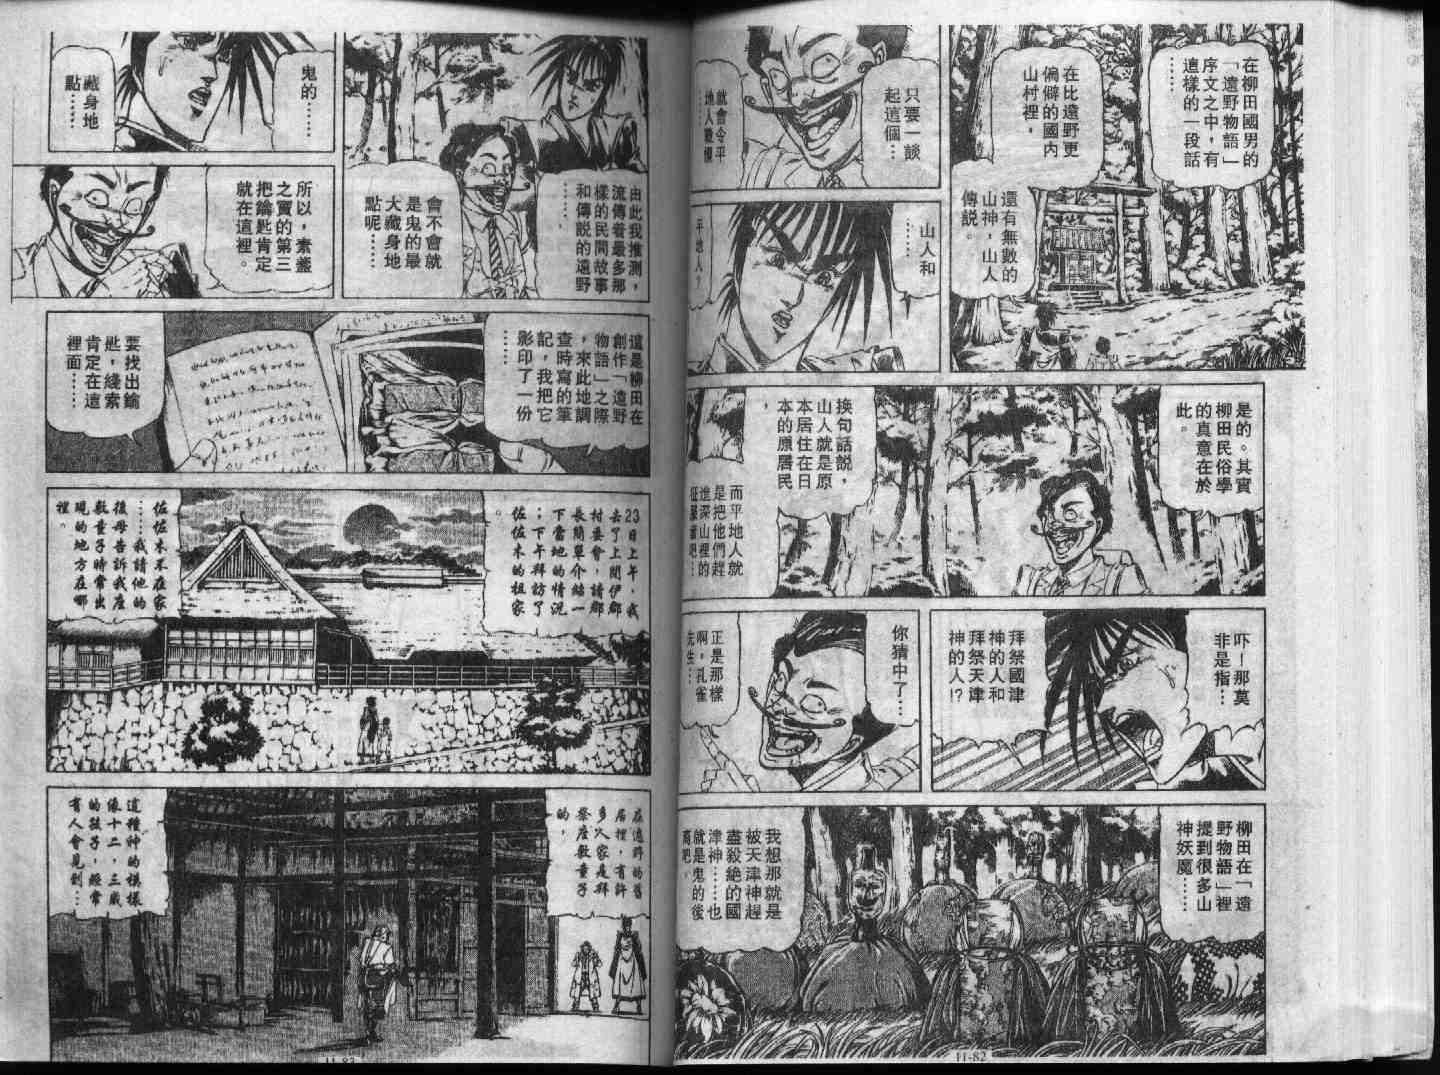 在柳田國男的
「遠野物語」
序文之中，有
這樣的一段話
……
在比遠野更
偏僻的國內
山村裡，
還有無數的
山神，山人
傳說。
只要一談
起這個…
就會令平
地人戰慄
……
山人和
……
平地人？
是的。其實
柳田民俗學
的真意在於
此。
換句話說，
山人就是原
本居住在日
本的原居民
，
而平地人就
是把他們趕
進深山裡的
征服者吧…
吓—那莫
非是指…
拜祭國津
神的人和
拜祭天津
神的人!?
你猜中了…
正是那樣
啊，孔雀
先生…
柳田在「遠
野物語」裡
提到很多山
神妖魔……
我想那就是
被天津神趕
盡殺絕的國
津神……也
就是鬼的後
裔吧。
11-82
由此我推測，
流傳着最多那
樣的民間故事
和傳説的遠野
……，
會不會就
是鬼的最
大藏身地
點呢……
鬼的………
藏身地
點……
所以，素盞
之寶的第三
把鑰匙肯定
就在這裡。
這是柳田在
創作「遠野
物語」之際
，來此地調
查時寫的筆
記，我把它
影印了一份
……
要找出鑰
匙，綫索
肯定在這
裡面……
23日上午，我
去了上閉伊郡
村委會，請郡
長簡單介紹一
下當地的情況
：下午拜訪了
佐佐木的祖家
。
佐佐木不在家
……我請他的
後母告訴我座
敷童子時常出
現的地方在哪
裡。
在遠野的舊
居裡，有許
多人家是拜
祭座敷童子
的，
這種神的模樣
像十二，三歲
的孩子，經常
有人會見到…
11-83